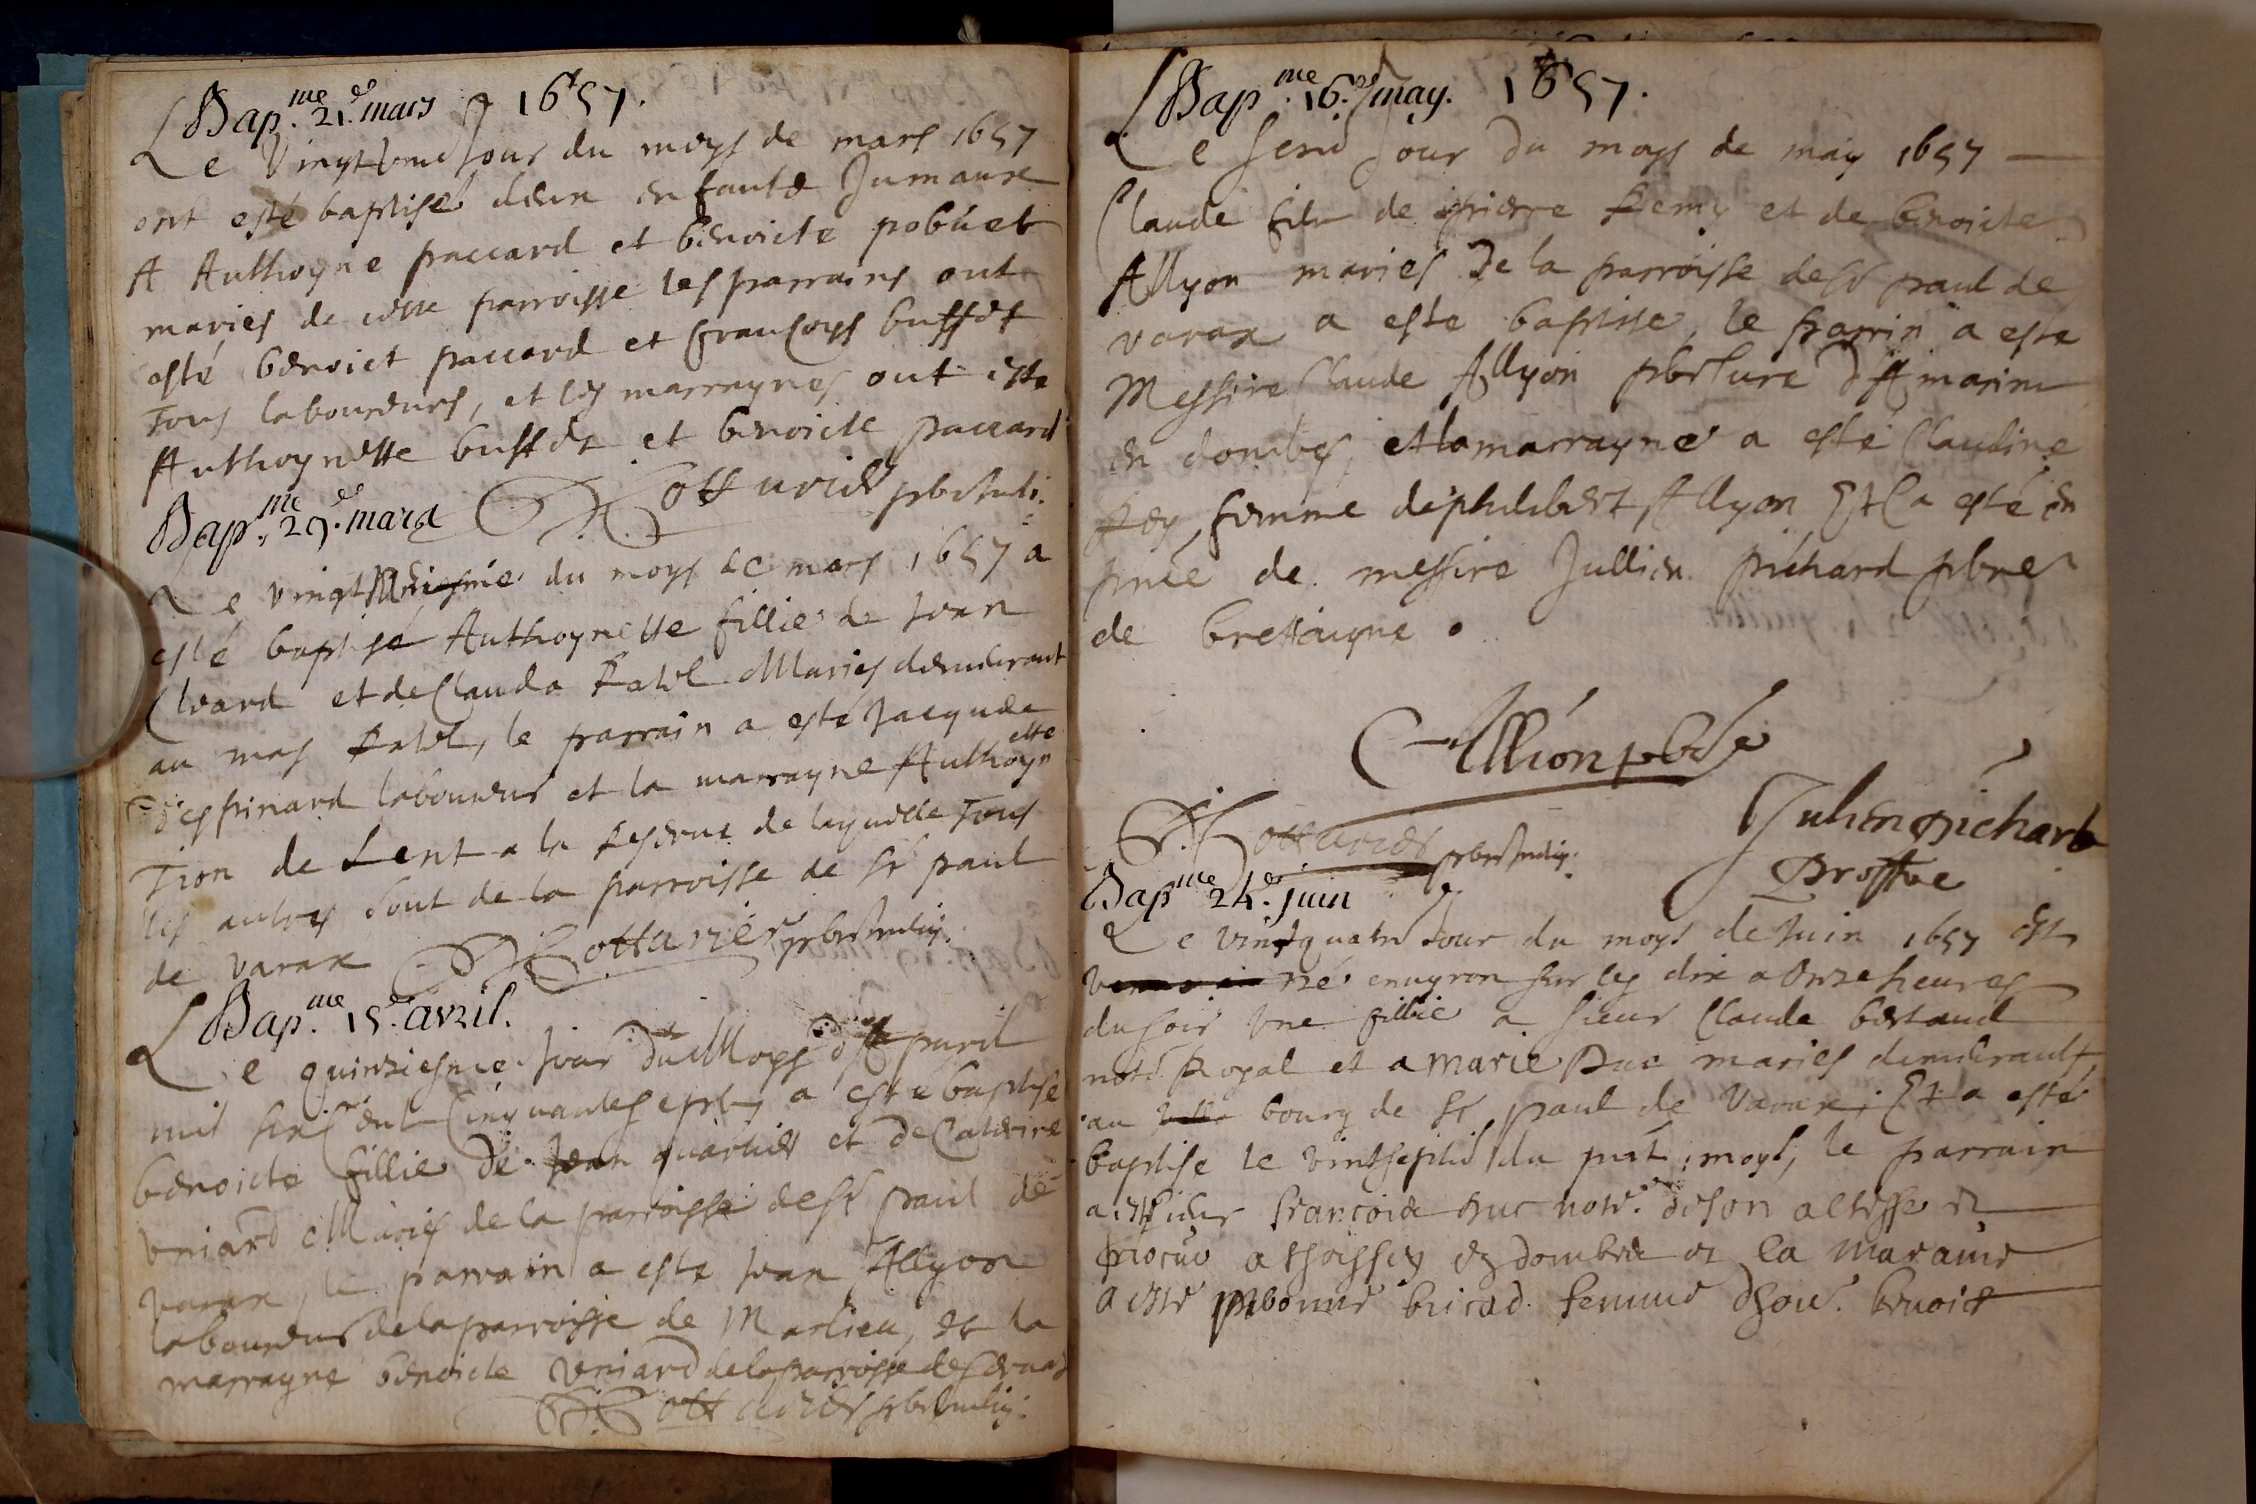 Bap.me 21.e mars 1657.
Le Vingt Jour du moys de mars 1657
ont esté baptisé deux enfants Jumaux
A Anthoyne paccard et benoicte pobuet
mariés de cette parroisse les parrains ont
esté benoict paccard et francoys buffet
Tous laboureurs, et les marraynes ont esté
Anthoynette buffet et benoicte paccard
Cottarier
Bap.me 29.e mars
Le vingt du moys de mars 1657 a
esté baptisé Anthoynette fillie de Jean
Cleard et de Clauda Ratel Mariés demeurant
au mas Ratel, le parrain a esté Jacques
despinard laboureur et la marrayne Anthoynette
Tion de Lent a la Reserve de laquelle Tous
les autres sont de la parroisse de St paul
de varax Cottarier
Bap.me 15.e avril.
Le quinziesme Jour du Moys d'apvril
mil six cent Cinquante sept a esté baptisé
benoicte fillie de Jean quartier et de Caterine
Uniard Mariés de la parroisse de St paul de
varax, le parrain a esté Jean Allyon
laboureur de la parroisse de Marlieu, et la
marrayne benoicte Uniard de la parroisse de
Cottarier
Bap.me 16.e may. 1657.
Le Jour du moys de may 1657
Claude fils de pierre Remy et de benoicte
Allyon mariés De la parroisse de St paul de
varax a esté baptisé, le parrin a esté
Messire Claude Allyon
en dombes, et la marrayne a esté Claudine
Rey, femme de philibert Allyon Et Ca esté en
pnce de messire Jullien pichard pbre
de brettaigne.
Allion pbre
Cottarier
Julien pichart
Prostre
Bap.me 24.e juin
Le vintquatre Jour du moys de Juin 1657 est
né environ sur les dix a Onze heures
du soir Une fillie a sieur Claude bertaud
notre Royal et a marie Duc mariés demeurants
au bourg de St paul de Varax; Et a esté
baptisé le vintseptie du pnt moys, le parrain
a esté sieur francois duc notre. de son altesse et
procur a thoissey en dombes et la maraine
a esté bricad. femme benoict